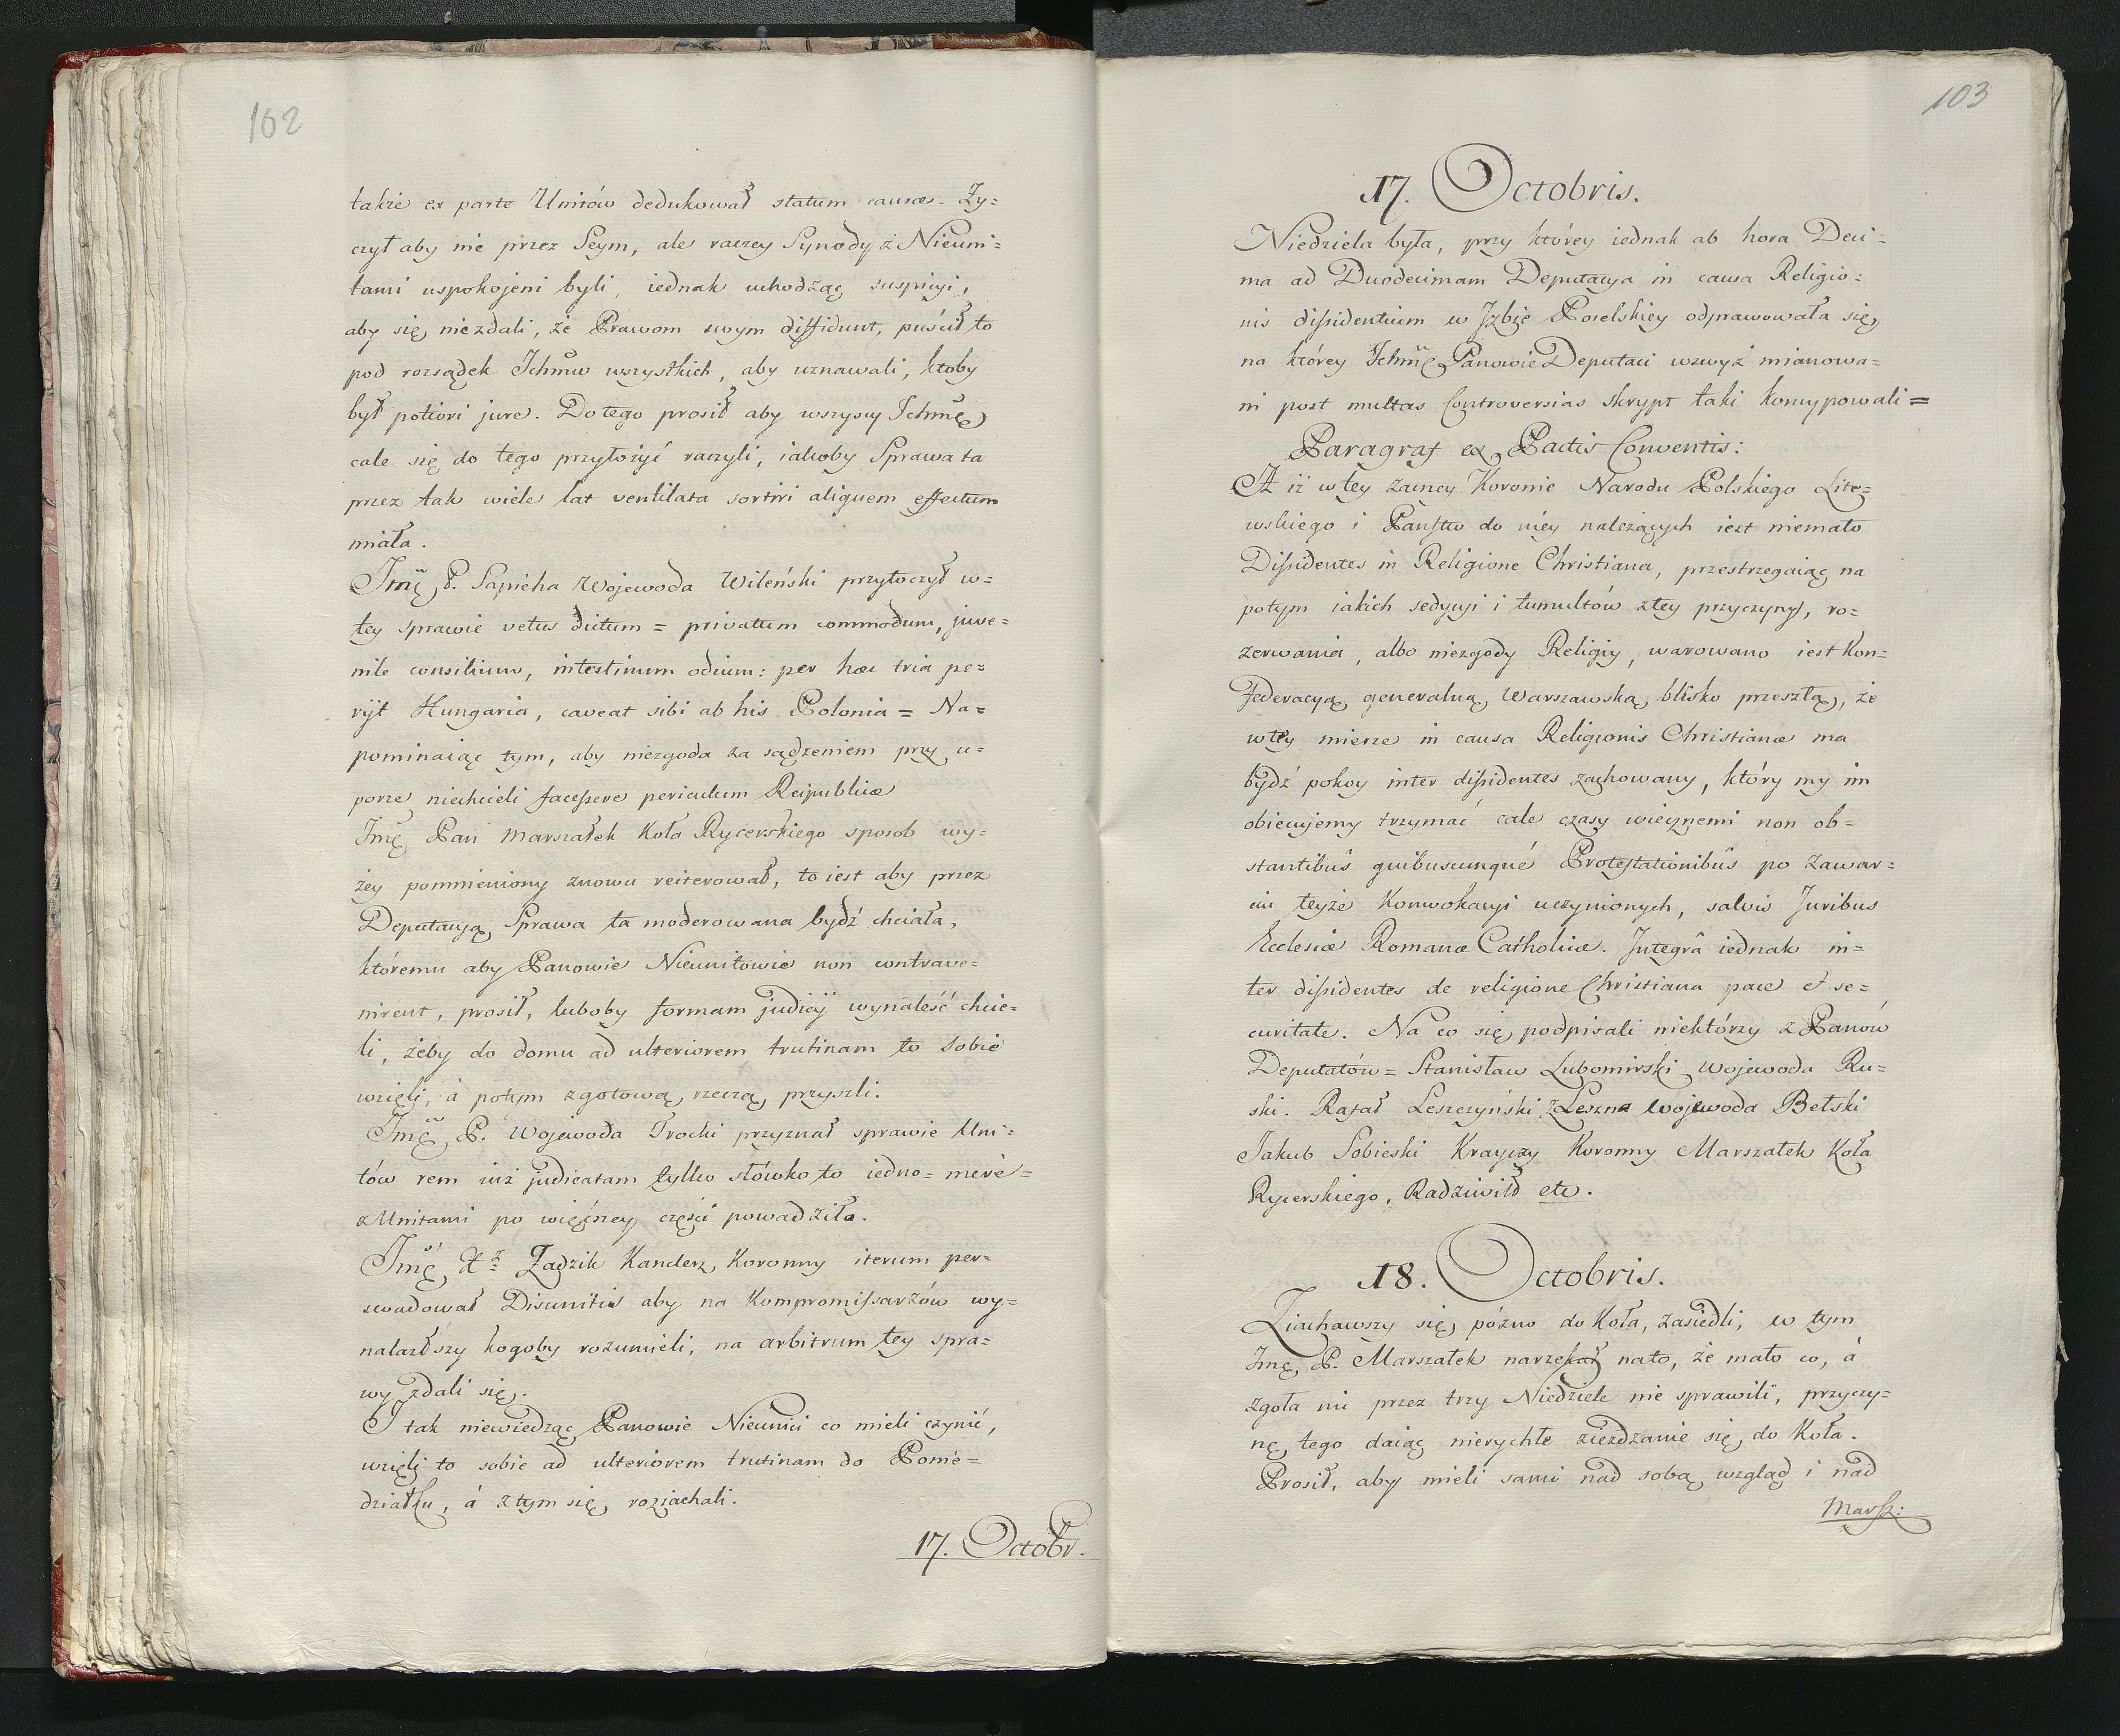 102
także ex parte Unitów dedukował statum causæ. Ży=
czył aby nie przez Seym, ale raczey Synody z Nieuni=
tami uspokojeni byli, iednak uchodząc suspicyi,
aby się niezdali, że Prawom swym diffidunt, puścił to
pod rozsądek Ichmw wszystkich, aby uznawali, ktoby
był potiori jure. Do tego prosił aby wszyscy Ichmę
cale się do tego przyłożyć raczyli, iakoby Sprawa ta
przez tak wiele lat ventilata sortiri aliquem effectum
miała.
Jmę P. Sapieha Wojewoda Wileński przytoczył w=
tey sprawie vetus dictum = privatum commodum, juve=
nile consilium, intestinum odium: per hæc tria pe=
rijt Hungaria, caveat sibi ab his Polonia = Na=
pominaiąc tym, aby niezgoda za sądzeniem przy u=
porze niechcieli facessere periculum Reipublicæ
Jmę Pan Marszałek Koła Rycerskiego sposob wy=
żey pomnieniony znowu reiterował, to iest aby przez
Deputacyą Sprawa ta moderowana bydź chciała,
któremu aby Panowie Nieunitowie non contrave=
nirent, prosił, luboby formam judicij wynaleść chcie=
li, żeby do domu ad ulteriorem trutinam to sobie
wzięli, á potym zgotową rzeczą przyszli.
Jmę P. Wojewoda Trocki przyznał sprawie Uni=
tów rem iuż judicatam tylko słówko to iedno = merè =
z Unitami po więģszey części powadziło.
Jmę X. Zadzik Kanclerz Koronny iterum per=
swadował Disunitis aby na Kompromissarzów wy=
nalazłszy kogoby rozumieli, na arbitrum tey spra=
wy zdali się.
I tak niewiedząc Panowie Nieunici co mieli czynić,
wzięli to sobie ad ulteriorem trutinam do Ponie=
działku, á z tym się rozjachali.
17. Octobr.
103
17. Octobris.
Niedziela była, przy którey iednak ab hora Deci=
ma ad Duodecimam Deputacya in causa Religio=
nis dissidentium w Jzbie Poselskiey odprawowała się,
na którey Ichmę Panowie Deputaci wzwyż mianowa=
ni post multas Controversias skrypt taki koncypowali =
Paragraf ex Pactis Conventis:
A iż w tey zacney Koronie Narodu Polskiego Lite=
wskiego i Państw do niey należących iest niemało
Dissidentes in Religione Christiana, przestrzegaiąc na
potym iakich sedycyi i tumultów z tey przyczyny, ro=
zerwania, albo niezgody Religiy, warowano iest Kon=
federacyą generalną Warszawską blisko przeszłą, że
w tey mierze in causa Religionis Christianæ ma
bydź pokoy inter dissidentes zachowany, który my im
obiecujemy trzymać cale czasy wiecznemi non ob=
stantibus quibuscunque Protestationibus po zawar=
ciu teyże Konwokacyi uczynionych, salvis Juribus
Ecclesiæ Romanæ Catholicæ. Jntegrâ iednak in=
ter dissidentes de religione Christiana pace et se=
curitate. Na co się podpisali niektórzy z Panów
Deputatów = Stanisław Lubomirski Wojewoda Ru=
ski. Rafał Leszczyński z Leszna Wojewoda Bełski
Jakub Sobieski Krayczy Koronny Marszałek Koła
Rycerskiego. Radziwiłł etc.
18. Octobris.
Ziachawszy się późno do Koła, zasiedli, w tym
Jmę P. Marszałek narzekał nato, że mało co, á
zgoła nic przez trzy Niedziele nie sprawili, przyczy=
nę tego daiąc nierychłe zieżdzanie się do Koła.
Prosił, aby mieli sami nad sobą wzgląd i nad
Marsz: